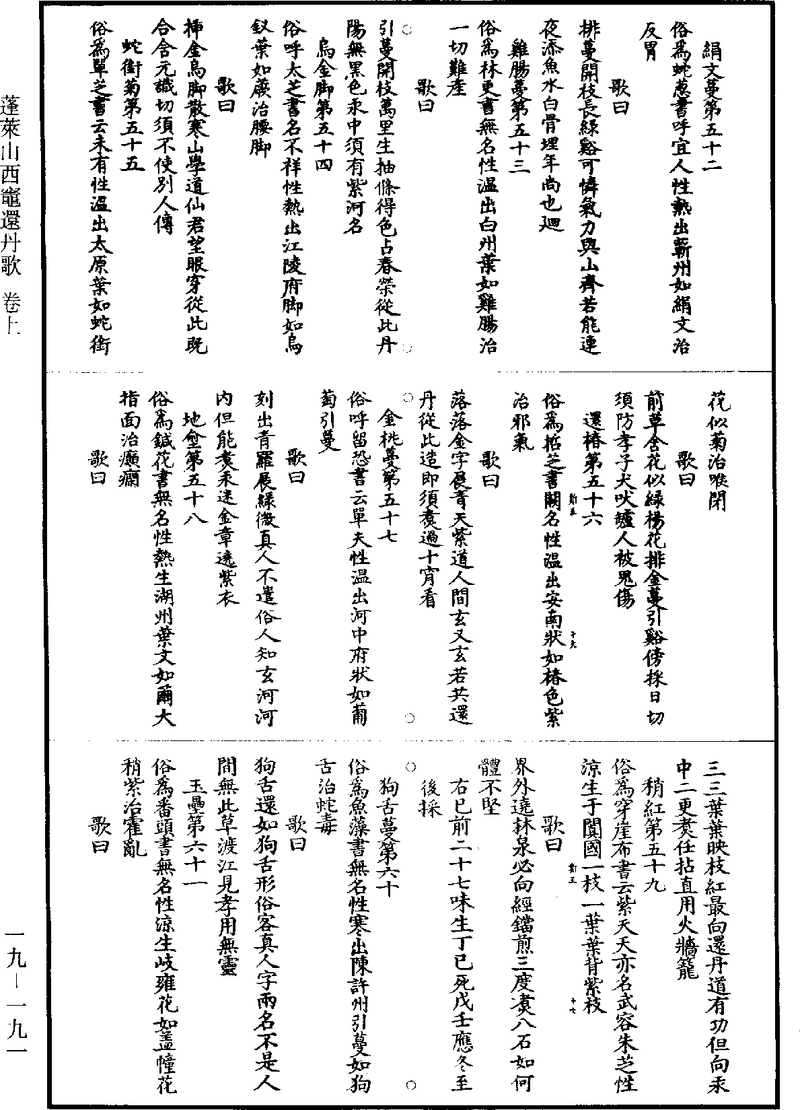 絹文蔓第五十二
俗爲蛇蔥書呼宜人性熱出蘄州如絹文治
反胃
歌曰
排蔓開枝長綠谿可憐氣力與山齊若能連
夜添魚水白骨埋年尚也迴
雞腸蔓第五十三
俗爲林更書無名性溫出白州葉如雞腸治
一切難產
歌曰
引蔓開枝萬里生抽條得色占春榮從此丹
陽無黑色汞中須有紫河名
烏金脚第五十四
俗呼太芝書名不祥性熱出江陵府脚如烏
釵葉如蕨治腰脚
歌曰
揷金烏脚散寒山學道仙君望眼穿從此既
合含元識切須不使別人傳
蛇銜菊第五十五
俗爲單芝書云未有性溫出太原葉如蛇銜
花似菊治喉閉
歌曰
前草含花似綠楊花排金蔓引谿傍採日切
須防孝子犬吠爐人被鬼傷
還椿第五十六
俗爲拓芝書闕名性溫出安南狀如椿色紫
治邪氣
歌曰
落落金字展青天紫道人間玄又玄若共還
丹從此造即須煑過十宵看
金桃蔓第五十七
俗呼留恐書云單夫性溫出河中府狀如蔔
萄引蔓
歌曰
刻出青羅展綠微真人不遣俗人知玄河河
內但能煑汞迷金章遶紫衣
地奩第五十八
俗爲鍼花書無名性熱生湖州葉文如薾大
指面治癲癎
歌曰
三三葉葉映枝紅最向還丹道有功但向汞
中二更煑任拈直用火牆籠
稍紅第五十九
俗爲穿崖布書云紫天天亦名武容朱芝性
涼生于闐國一枝一葉葉背紫枝
歌曰
界外遶林泉必向經鐺煎三度煑八石如何
體不堅
右已前二十七味生丁巳死戊壬應冬至
後採
狗舌蔓第六十
俗爲魚藻書無名性寒出陳許州引蔓如狗
舌治蛇毒
歌曰
狗舌還如狗舌形俗客真人字兩名不是人
間無此草渡江見孝用無靈
玉壘第六十一
俗爲番頭書無名性涼生岐雍花如盖幢花
稍紫治霍亂
歌曰
蓬萊山西竈還丹歌 卷上
一九－一九一